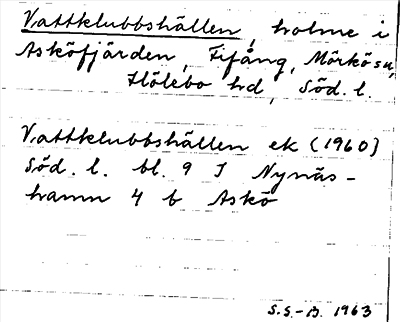 Vattklubbshällen, holme i
Asköfjärden, Fifång, Mörkö sn,
Hölebo hd, Söd. l.
Vattklubbshällen ek (1960)
Söd. l. bl. 9 I Nynäs-
hamn 4 b Askö
S.S.-B. 1963